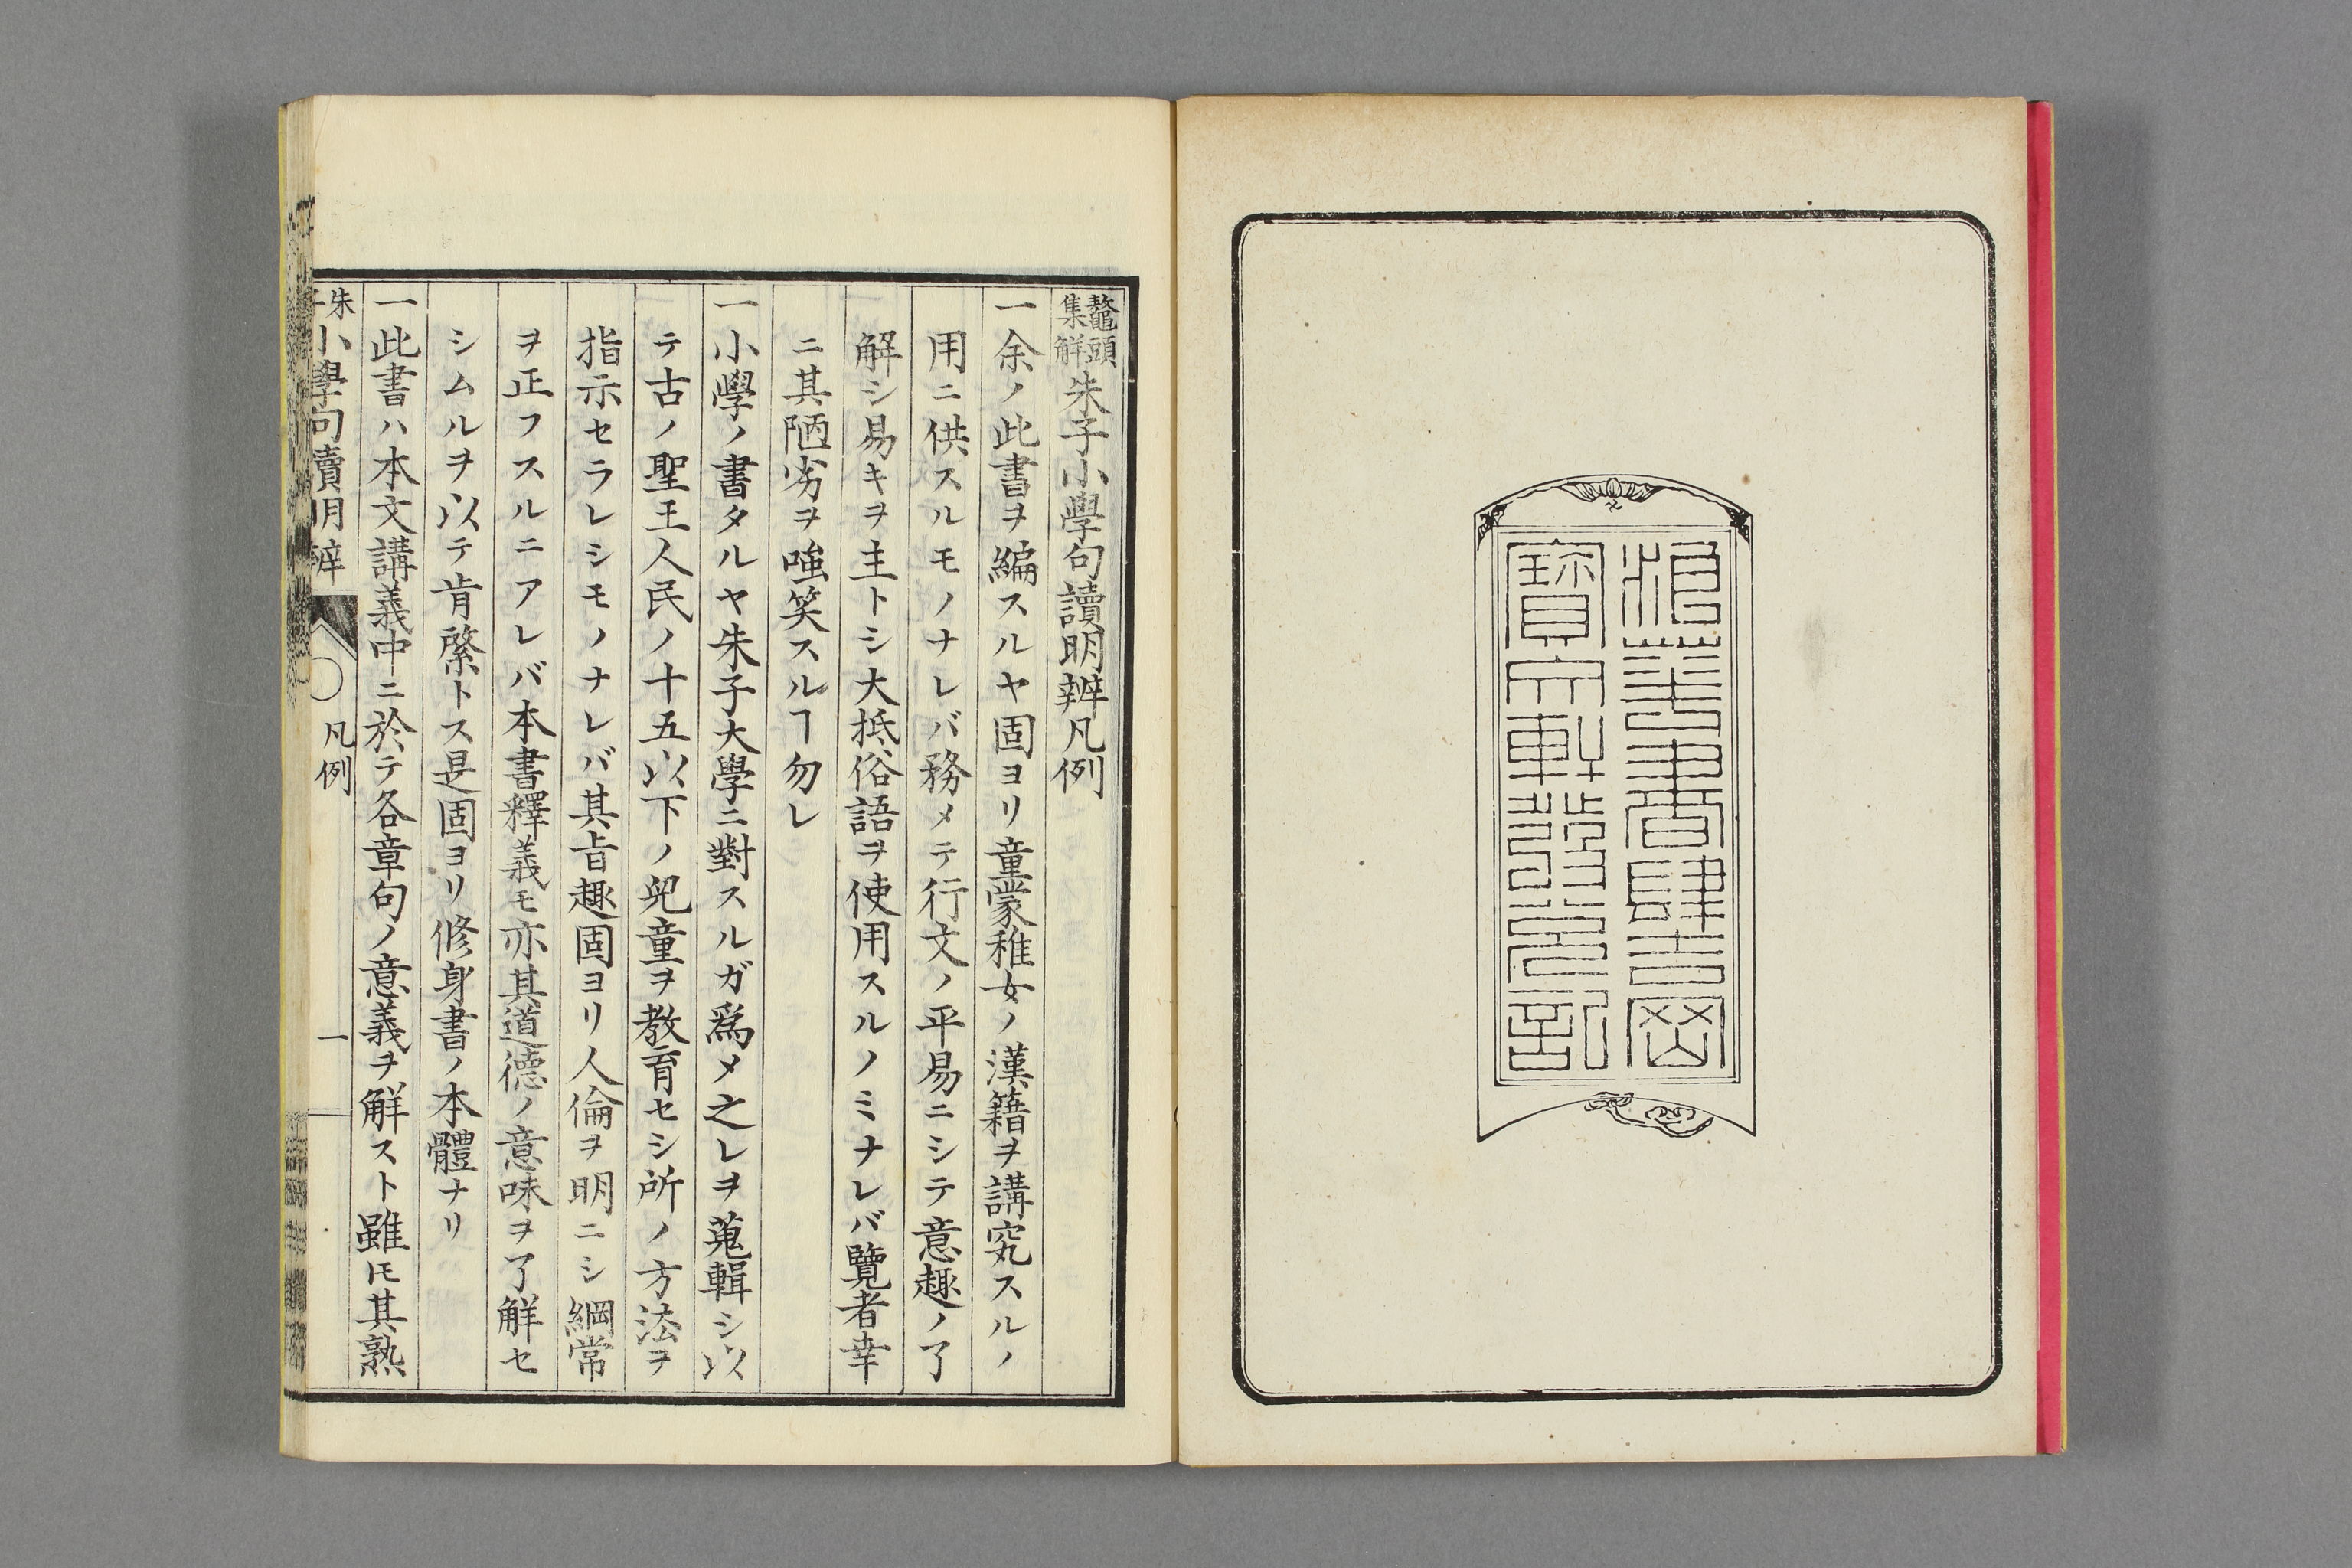 浪華書肆吉岡
寶文軒發兌記
鼇頭集解朱子小學句讀明辨凡例
一余ノ此書ヲ編スルヤ固ヨリ童蒙稚女ノ漢籍ヲ講究スルノ
用ニ供スルモノナレバ務メテ行文ノ平易ニシテ意趣ノ了
解シ易キヲ主トシ大抵俗語ヲ使用スルノミナレバ覽者幸
ニ其陋劣ヲ嗤笑スルヿ勿レ
一小學ノ書タルヤ朱子大學ニ對スルガ爲メ之レヲ蒐輯シ以
テ古ノ聖王人民ノ十五以下ノ兒童ヲ教育セシ所ノ方法ヲ
指示セラレシモノナレバ其旨趣固ヨリ人倫ヲ明ニシ綱常
ヲ正フスルニアレバ本書釋義モ亦其道德ノ意味ヲ了解セ
シムルヲ以テ肯綮トス是固ヨリ修身書ノ本體ナリ
一此書ハ本文講義中ニ於テ各章句ノ意義ヲ解スト雖𪜈其熟
朱子小學句讀明辨 〇 凡例 一